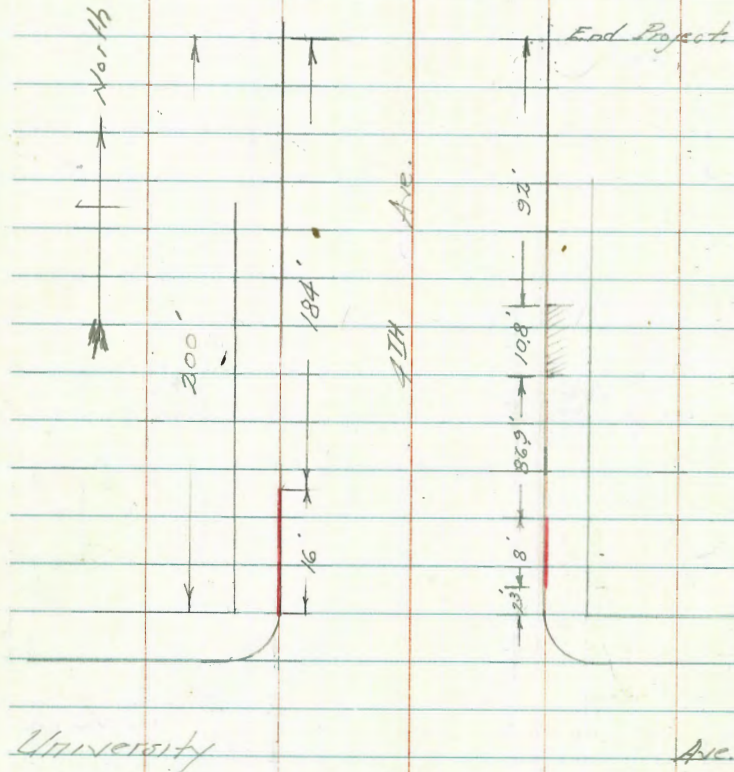 North
End Project.
200'
184'
16'
4TH Ave.
92'
10.8'
86.9'
8'
2.3'
University Ave.